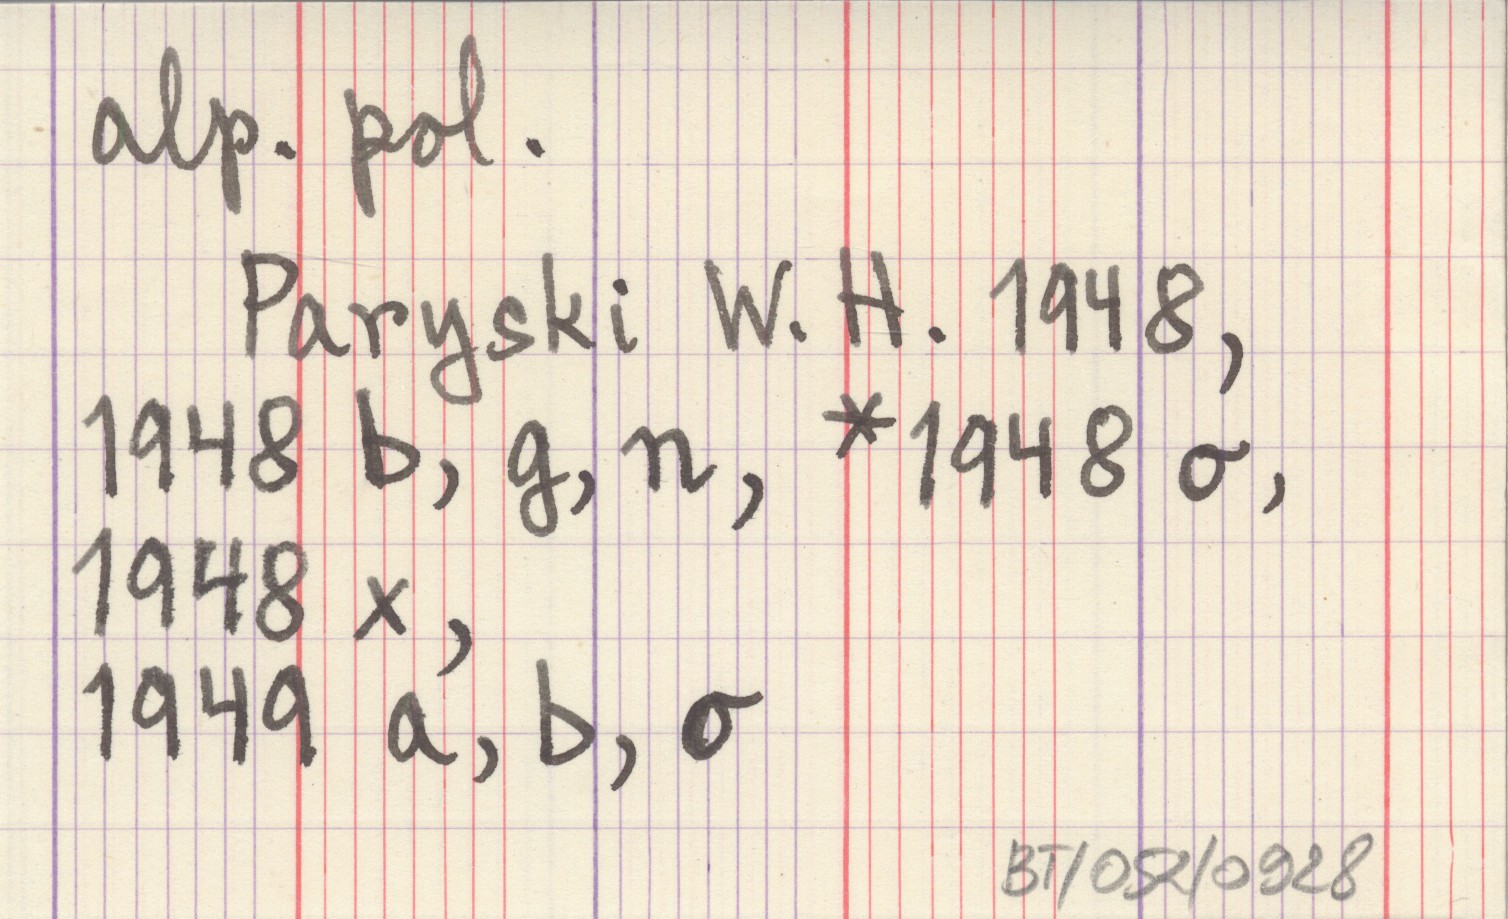 alp. pol.
Paryski W. H. 1948,
1948 b, g, n, *1948 o,
1948 x,
1949 a, b, o
BT/052/0928